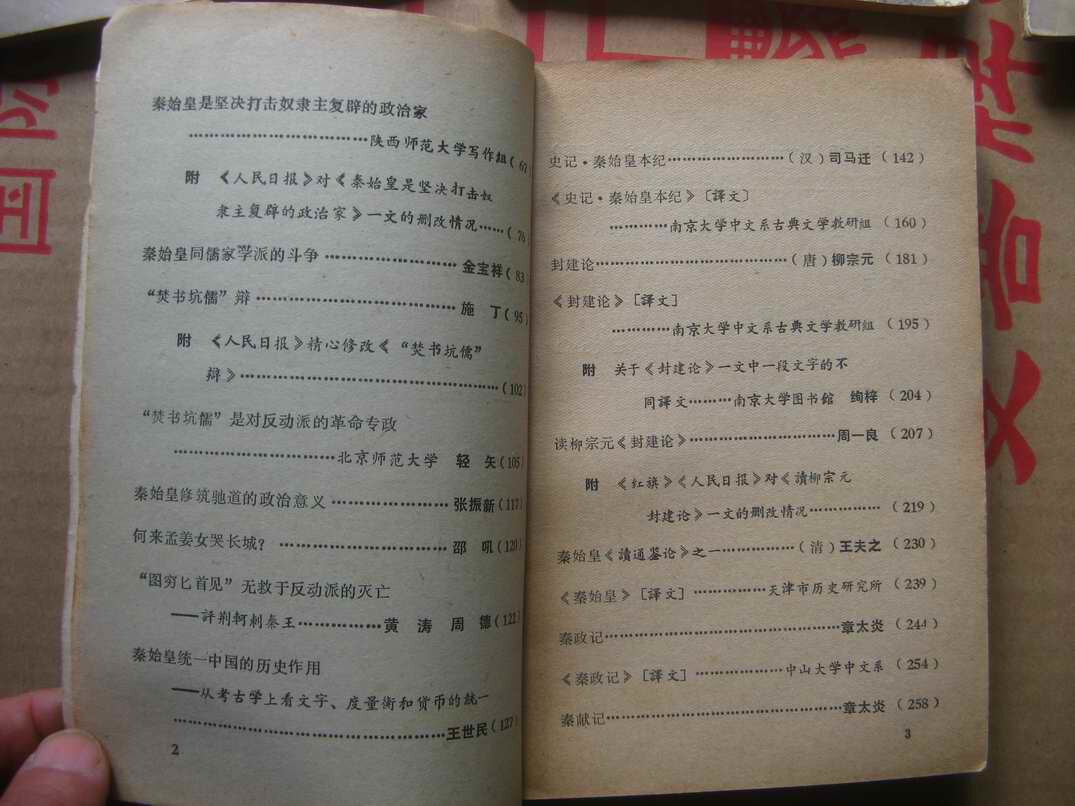 秦始皇是坚决打击奴隶主复辟的政治家
………………………………陕西师范大学写作组(67
附 《人民日报》对《秦始皇是坚决打击奴
隶主复辟的政治家》一文的删改情况……(76)
秦始皇同儒家学派的斗争……………………金宝祥(83)
“焚书坑儒”辩………………………………施 丁(95)
附 《人民日报》精心修改《“焚书坑儒”
辩》……………………………………………(102)
“焚书坑儒”是对反动派的革命专政
…………………………北京师范大学 轻 矢(105)
秦始皇修筑驰道的政治意义…………………张振新(117)
何来孟姜女哭长城？…………………………邵 吼(120)
“图穷匕首见”无救于反动派的灭亡
——評荆轲刺秦王……………黄 涛 周 德(122)
秦始皇统一中国的历史作用
——从考古学上看文字、度量衡和货币的统一
………………………………………………王世民(127)
2
史记·秦始皇本纪……………………(汉)司马迁(142)
《史记·秦始皇本纪》[譯文]
…………南京大学中文系古典文学教研組(160)
封建论…………………………………(唐)柳宗元(181)
《封建论》[譯文]
…………南京大学中文系古典文学教研組(195)
附 关于《封建论》一文中一段文字的不
同譯文………南京大学图书館 绚梓(204)
读柳宗元《封建论》…………………………周一良(207)
附 《红旗》《人民日报》对《讀柳宗元
封建论》一文的删改情况……………(219)
秦始皇《讀通鉴论》之一……………(清)王夫之(230)
《秦始皇》[譯文]……………天津市历史研究所(239)
秦政记…………………………………………章太炎(244)
《秦政记》[譯文]………………中山大学中文系(254)
秦献记…………………………………………章太炎(258)
3